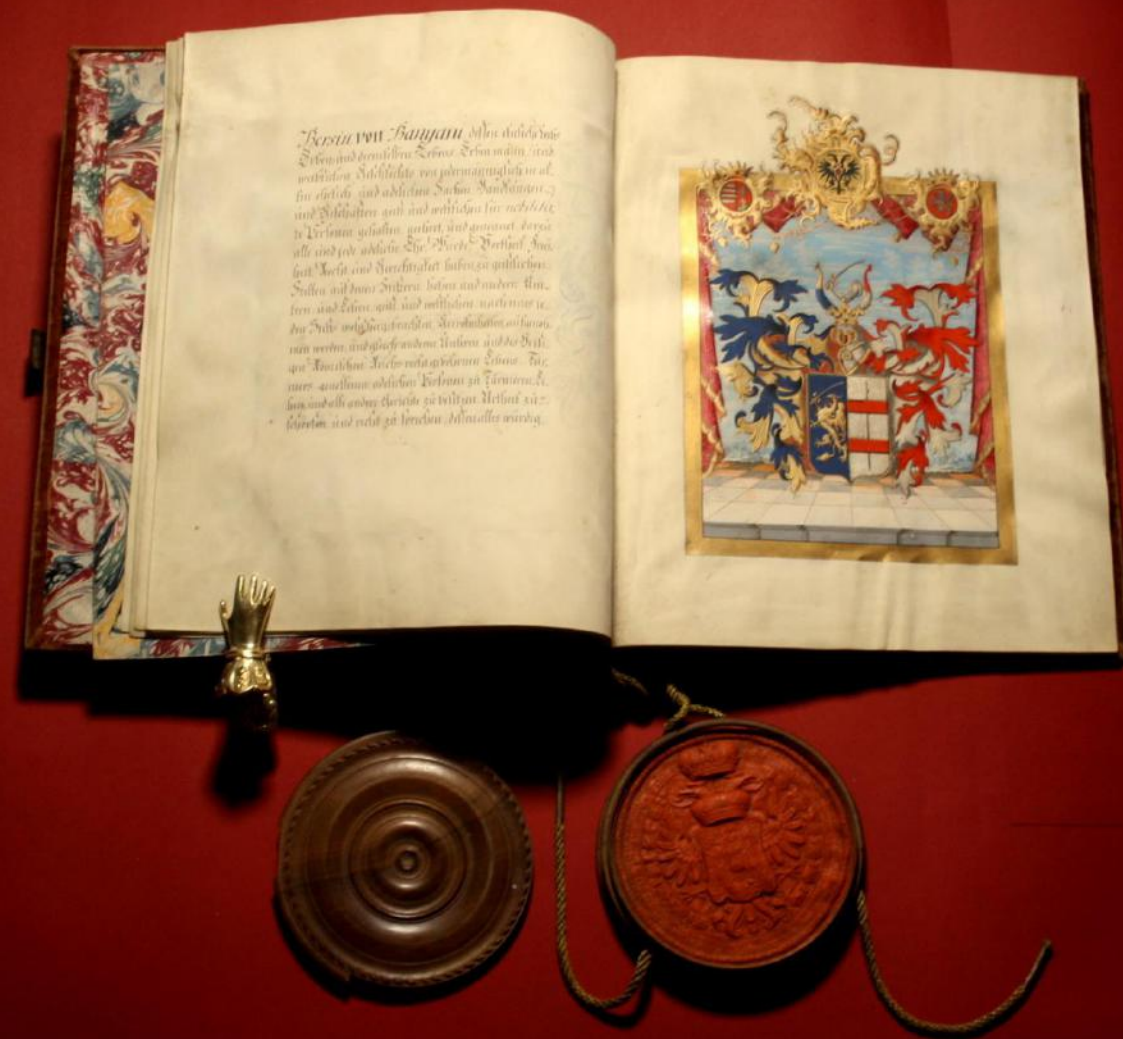 von Banyani deßen eheliche
Erben, und derenselben Erbens Erben mann- und
weiblichen Geschlechts von jedermänniglich in al-
len ehrlich- und adelichen Sachen, Handlungen,
und Geschäften geist und weltlichen für nobilitir-
te Personen gehalten, geehret, und genennet, darzu
alle und jede adeliche Ehr, Würde, Vortheil, Frey-
heit, Recht und Gerechtigkeit haben zu geistlichen
Stellen auf denen Stiftern, hohen und niedern Aem-
tern und Lehen, geist und weltlichen nach eines je-
den Stifts wohlhergebrachten Gewohnheiten
men werden, und gleich anderen Unseren und des Heili-
gen Römischen Reichs rechtgebohrnen Lehens- Tur-
niers-genoßenen adelichen Personen zu Turnieren, Le-
hen, und all andere Gericht zu besitzen, Urtheil zu
schöpfen, und recht zu sprechen, deßen alles würdig,